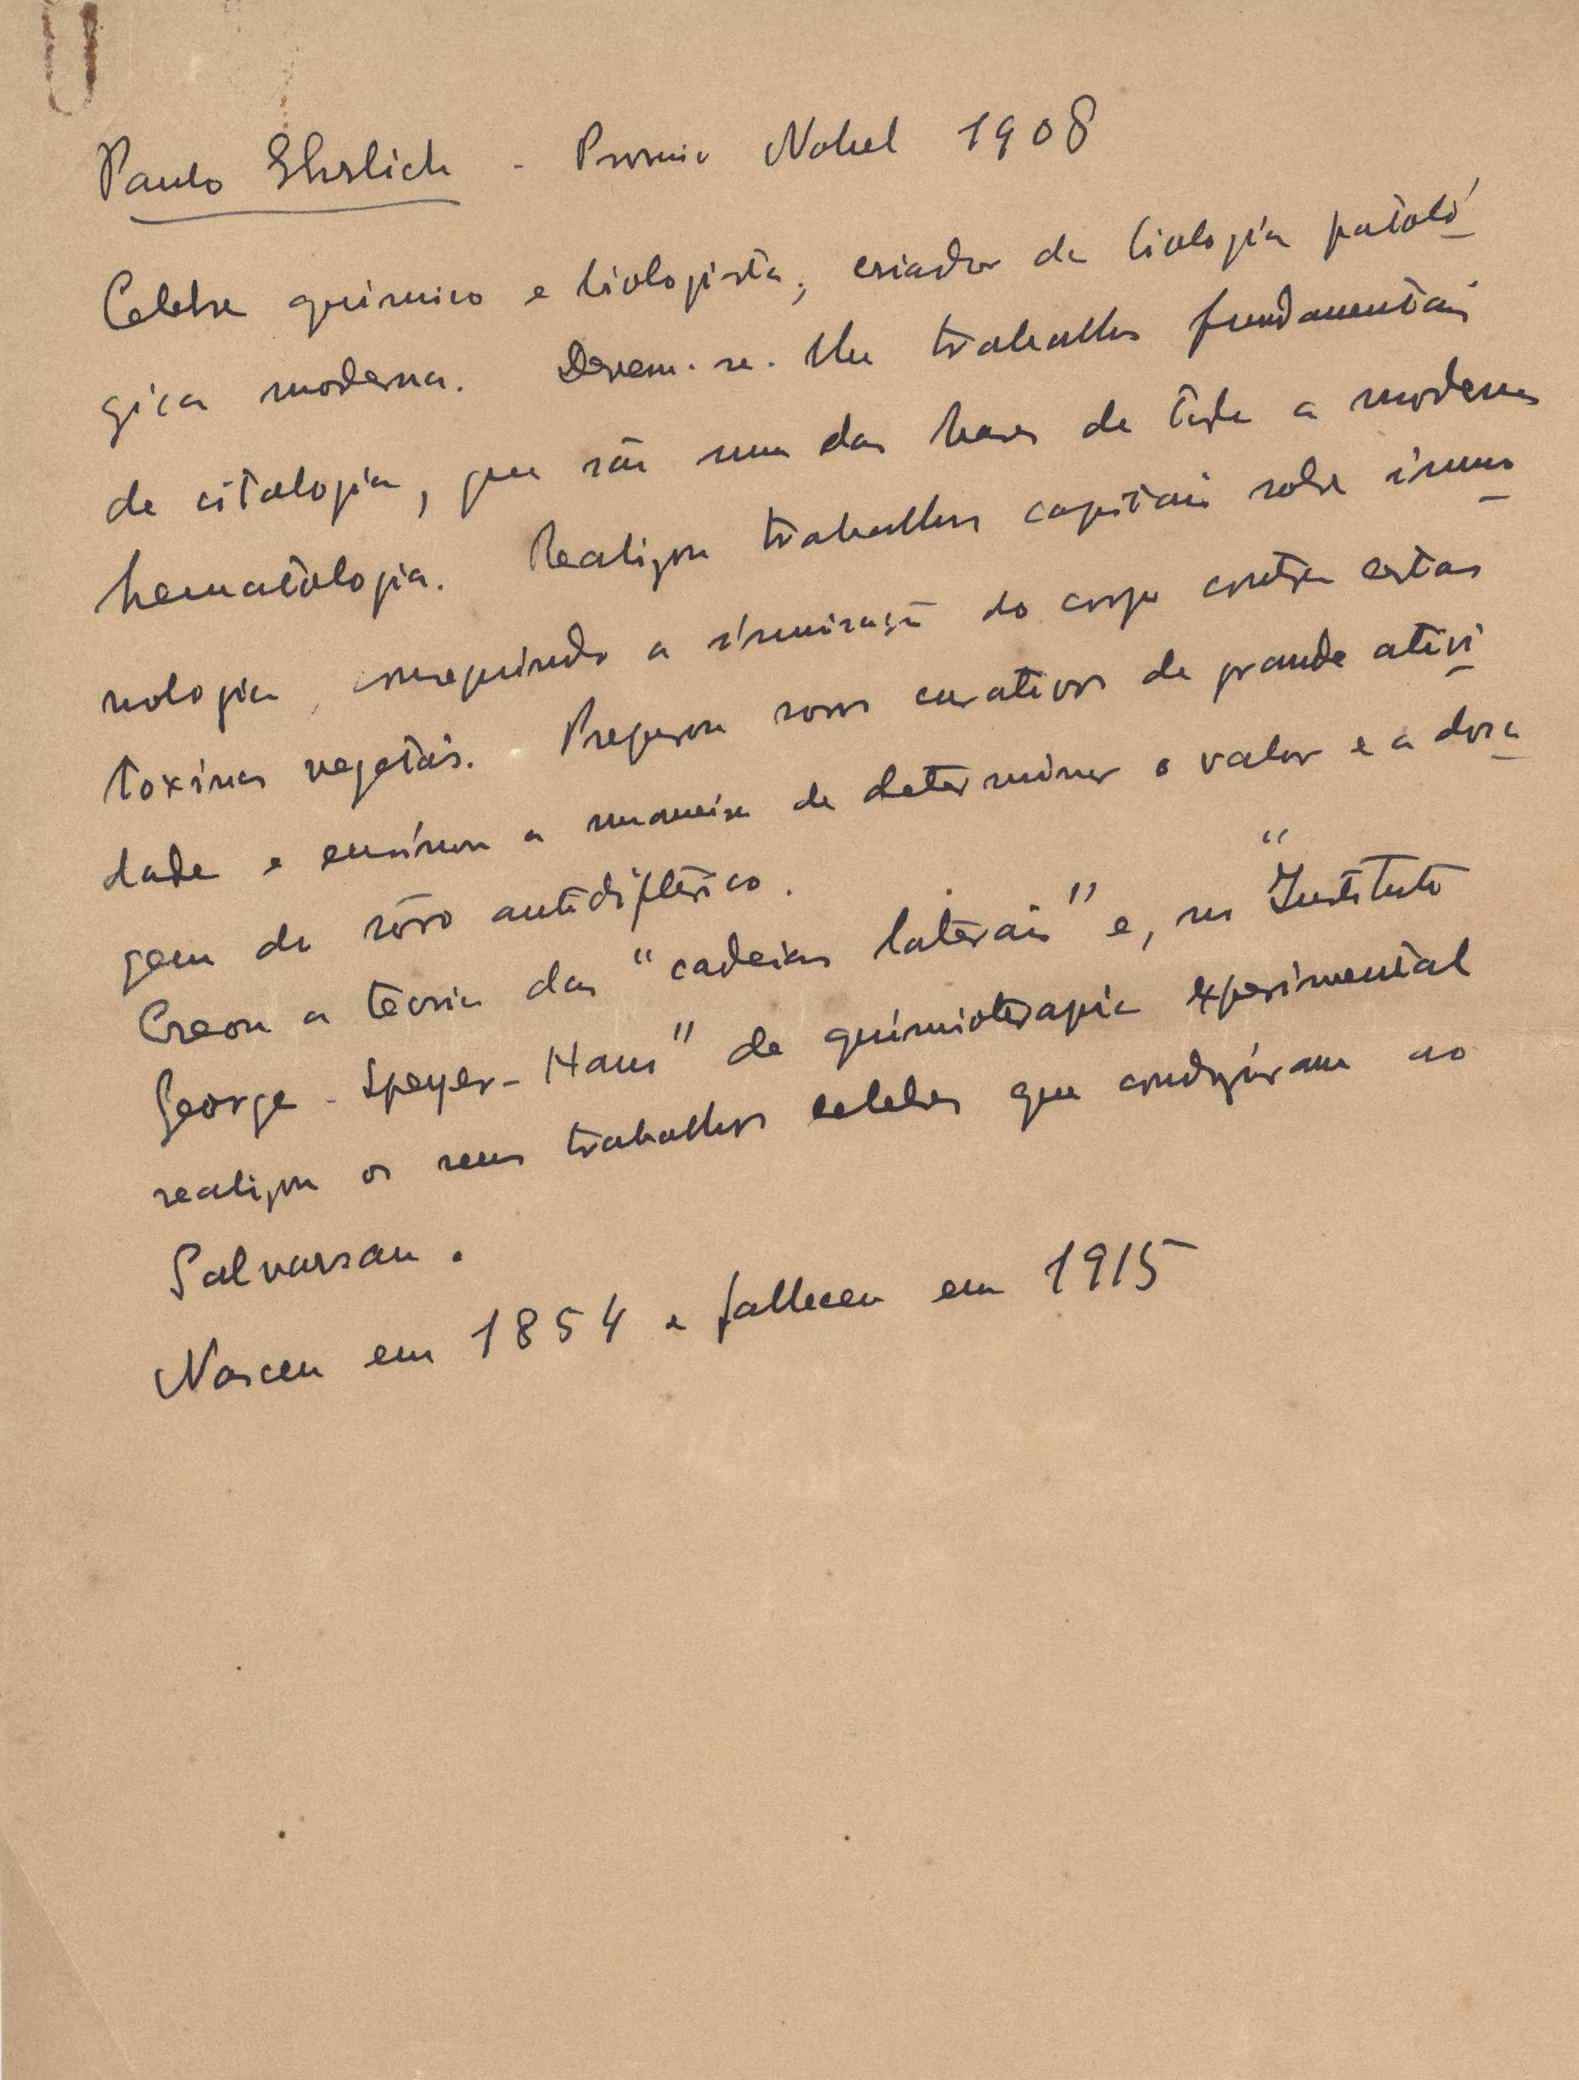 Paulo Ehrlich - Premio Nobel 1908
Celebre quimico e biologista, criador da biologia pátoló
gica moderna. Devem-se-lhe trabalhos fundamentais
de citologia, que são uma das bases de toda a moderna
hematologia. Realizou trabalhos capitais sobre imuno
nologia, conseguindo a imunisação do corpo contra certas
toxinas vegetais. Preparou soros curativos de grande ativi
dade e ensinou a maneira de determinar o valor e a dosa
gem do sôro antidiftérico.
Creou a teoria das "cadeias laterais" e, no "Instituto
George-Speyer-Haus" de quimioterapia experimental
realizou os seus trabalhos celebres que conduziram ao
Salvarsan.
Nasceu em 1854 e falleceu em 1915